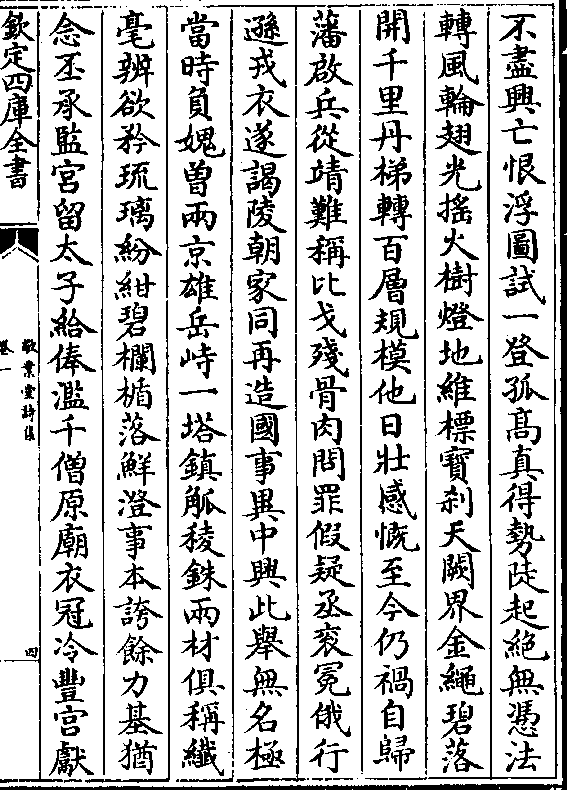 不盡興亡恨浮圖試一登孤高真得勢陡起絶無憑法
轉風輪翅光搖火樹燈地維標寶刹天闕界金繩碧落
開千里丹梯轉百層規模他日壯感慨至今仍禍自歸
藩啟兵從靖難稱比戈殘骨肉問罪假疑丞袞冕俄行
遜戎衣遂謁陵朝家同再造國事異中興此舉無名極
當時負媿曽兩京雄岳峙一塔鎮觚稜銖兩材俱稱纎
毫辨欲矜琉璃紛紺碧欄楯落鮮澄事本誇餘力基猶
念丕承監宮留太子給俸濫千僧原廟衣冠冷豐宮獻
欽定四庫全書
敬業堂詩集
卷一
四